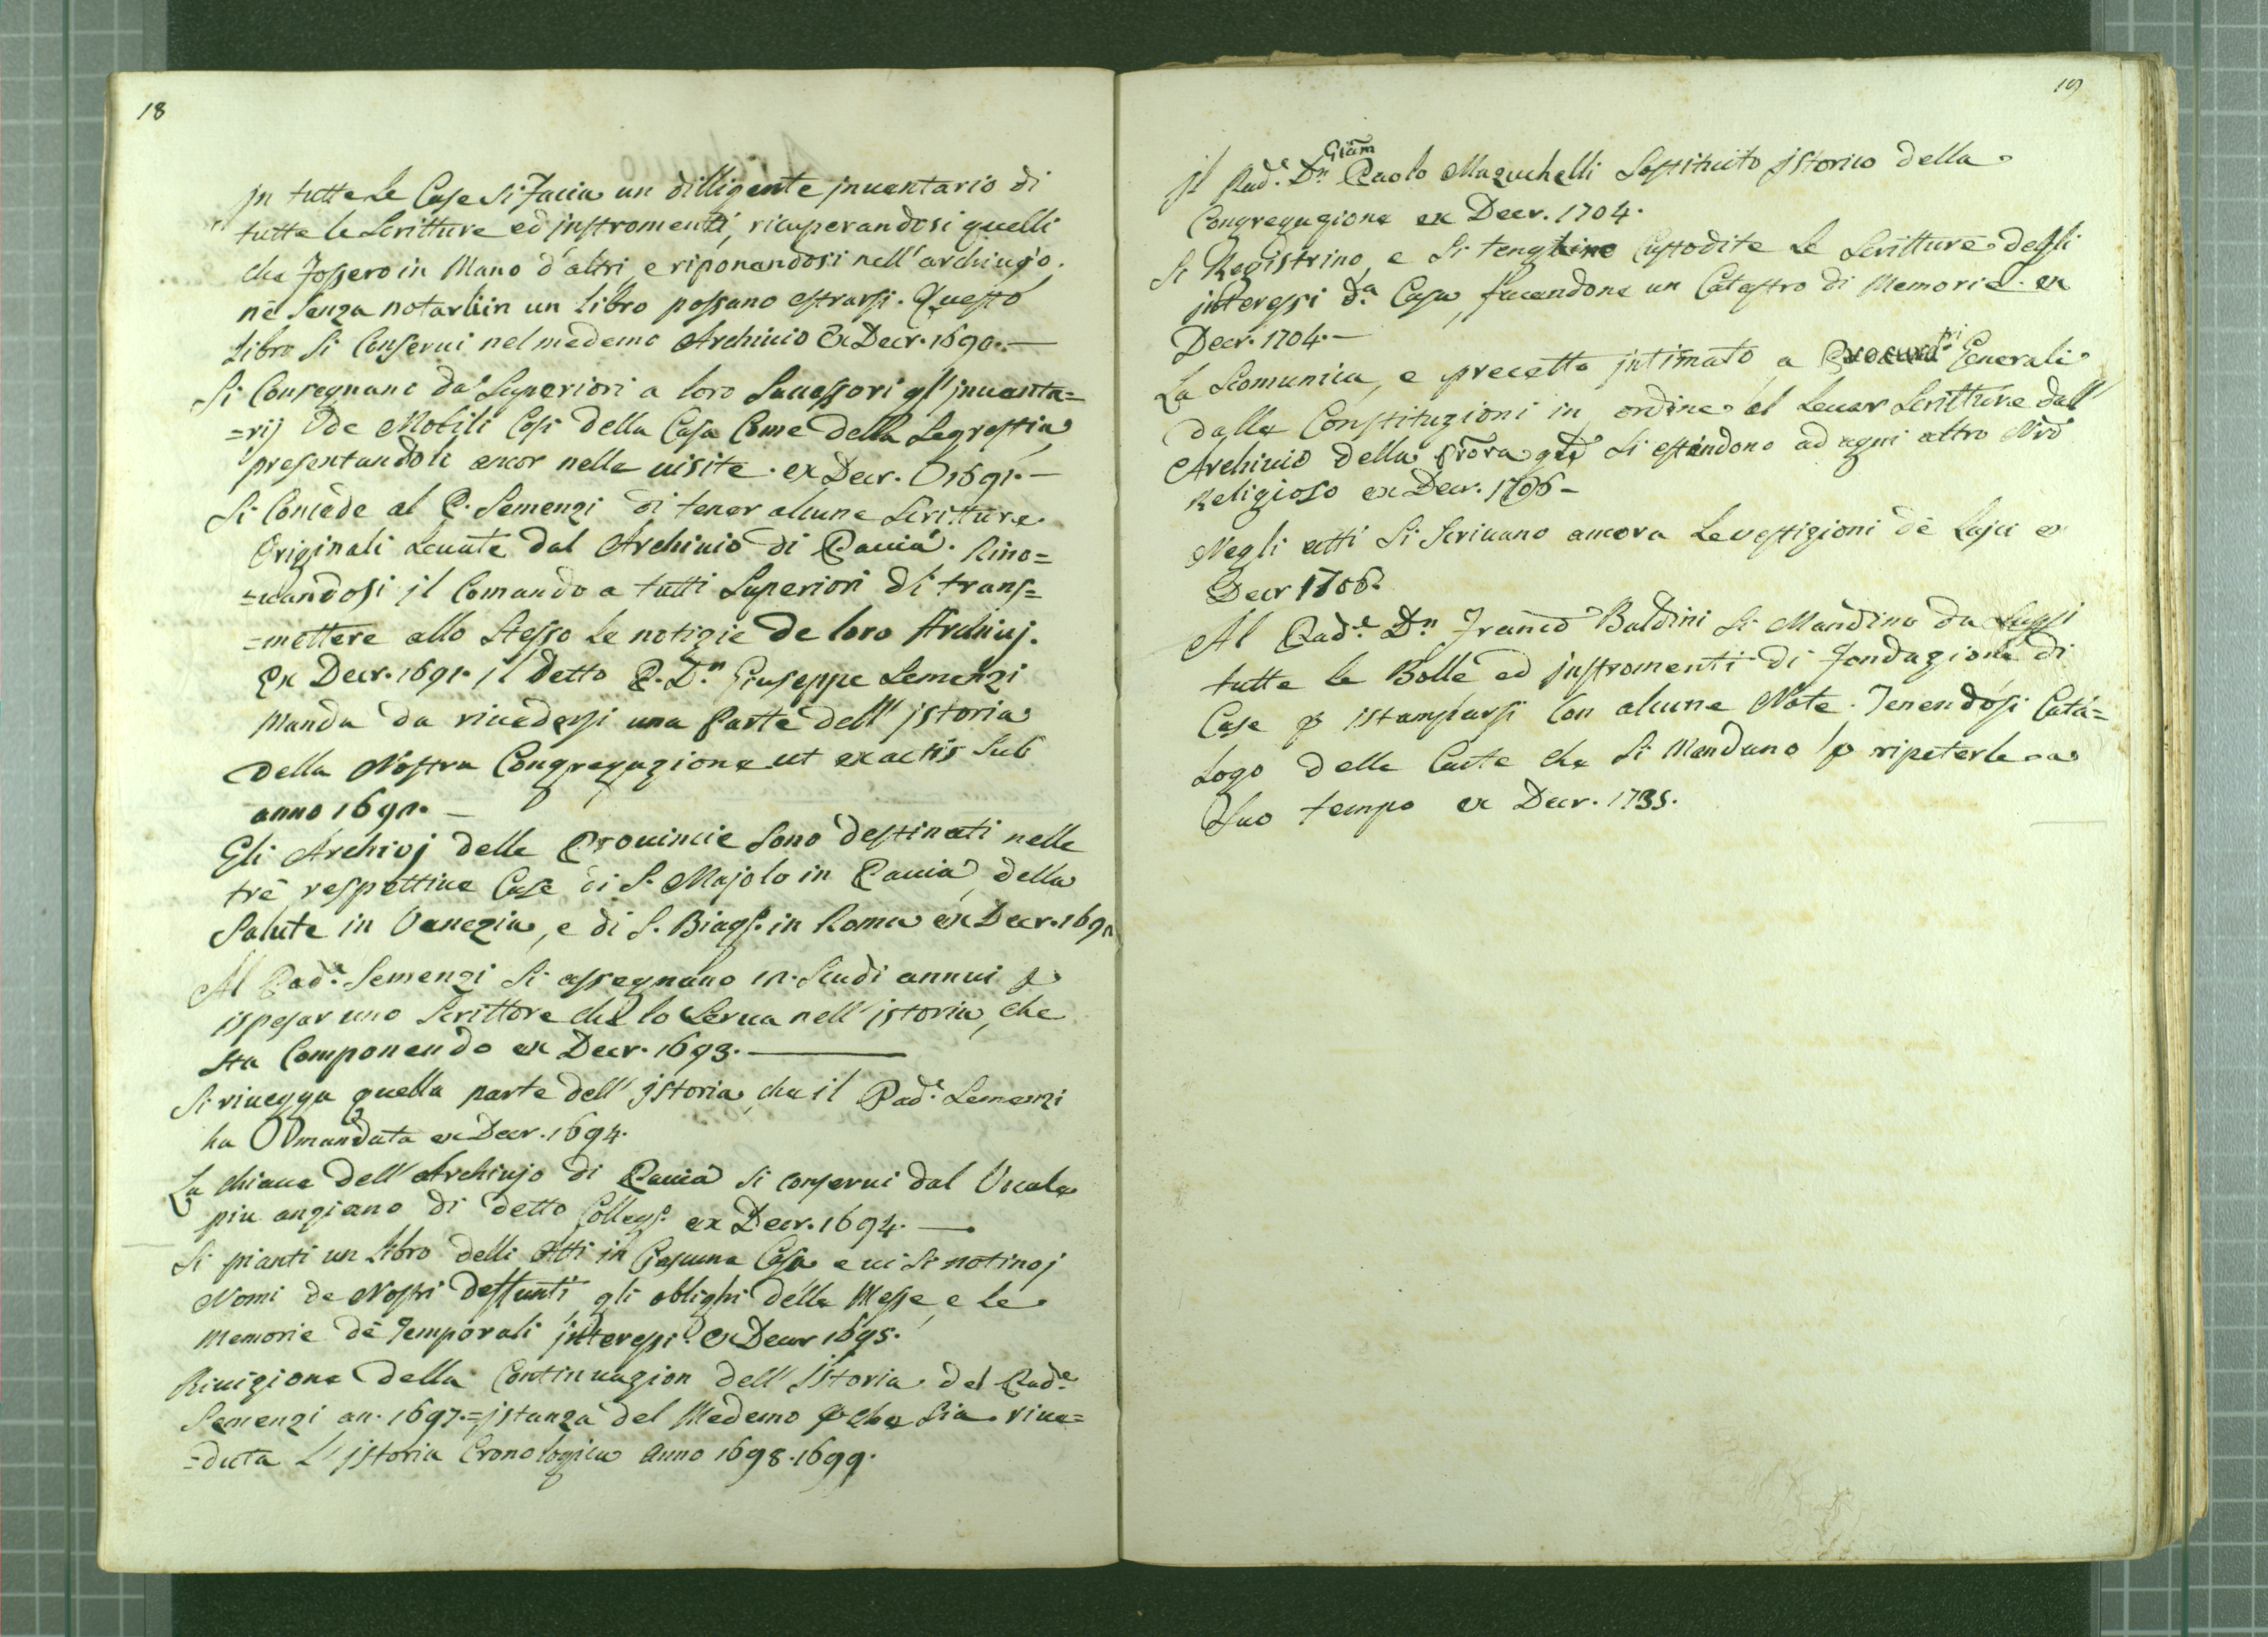 18
In tutte le Case si faccia un dilligente inuentario di
tutte le Scritture ed instromenti, ricuperandosi quelli
che fossero in Mano d'altri, e riponendosi nell'archiuio.
nè senza notarli in un libro possano estrarsi. Questo
Libro si Conserui nel medemo Archiuio Ex Decr. 1690.—
Si Consegnano da Superiori a loro Successori gl'inuenta=
=rij de Mobili Cosi della Casa Come della Segrestia,
presentandoli ancor nelle uisite. ex Decr. 1691.—
Si Concede al P. Semenzi di tener alcune Scritture
Originali Leuate dal Archiuio di Pauia. Rino=
=uandosi il Comando a tutti Superiori di trans=
=mettere allo Stesso le notizie de loro Archiuj.
Ex Decr. 1691. il detto P. Dn Giuseppe Semenzi
Manda da riuedersi una Parte dell'istoria
della Nostra Congregazione ut ex actis sub
anno 1691.—
Gli Archivj delle Prouincie sono destinati nelle
trè respettiue Case di S. Majolo in Pauia, della
Salute in Venezia, e di S. Biagº. in Roma ex Decr. 169
Al Pad.e Semenzi Si assegnano 12. Scudi annui p
ispesar uno Scrittore che lo Serua nell'istoria, che
sta Componendo ex Decr. 1693.—
Si riuegga quella parte dell'istoria che il Pad.e Semenzi
ha mandata ex Decr. 1694.
La chiaue dell'Archiujo di Pauia si conserui dal Vocale
piu anziano di detto Collegº. ex Decr. 1694.—
Si pianti un libro delli Atti in Ciascuna Casa e ui si notino j
Nomi de Nostri deffunti, gli oblighi delle Messe, e le
Memorie dè Temporali interessi. ex Decr 1695.
Riuizione della Continuazion dell'Istoria del Pad.e
Semenzi an. 1697.=istanza del Medemo p che sia riue=
=duta L'istoria Cronologica anno 1698. 1699.
19
Il Pad.e Dn Giam Paolo Mazuchelli Sostituito istorico della
Congregazione ex Decr. 1704.
Si Registrino, e Si tenghino Custodite le Scritture degli
interessi d.a Casa, facendone un Catastro di Memorie. ex
Decr. 1704.—
La Scomunica, e precetto intimato a Procurat.ri Generali
dalle Constituzioni in ordine al leuar Scritture dall'
Archiuio della Si estendono ad ogni altro Nro
Religioso ex Decr. 1706—
Negli atti Si Scriuano ancora Le uestizioni dè Laici ex
Decr 1706.
Al Pad.e Dn Franco Baldini Si Mandino da
tutte le Bolle ed instromenti di fondazione di
Case p istamparsi Con alcune Note. Tenendosi Cata=
Logo delle Carte che si Mandano p ripeterle a
Suo tempo ex Decr. 1735.